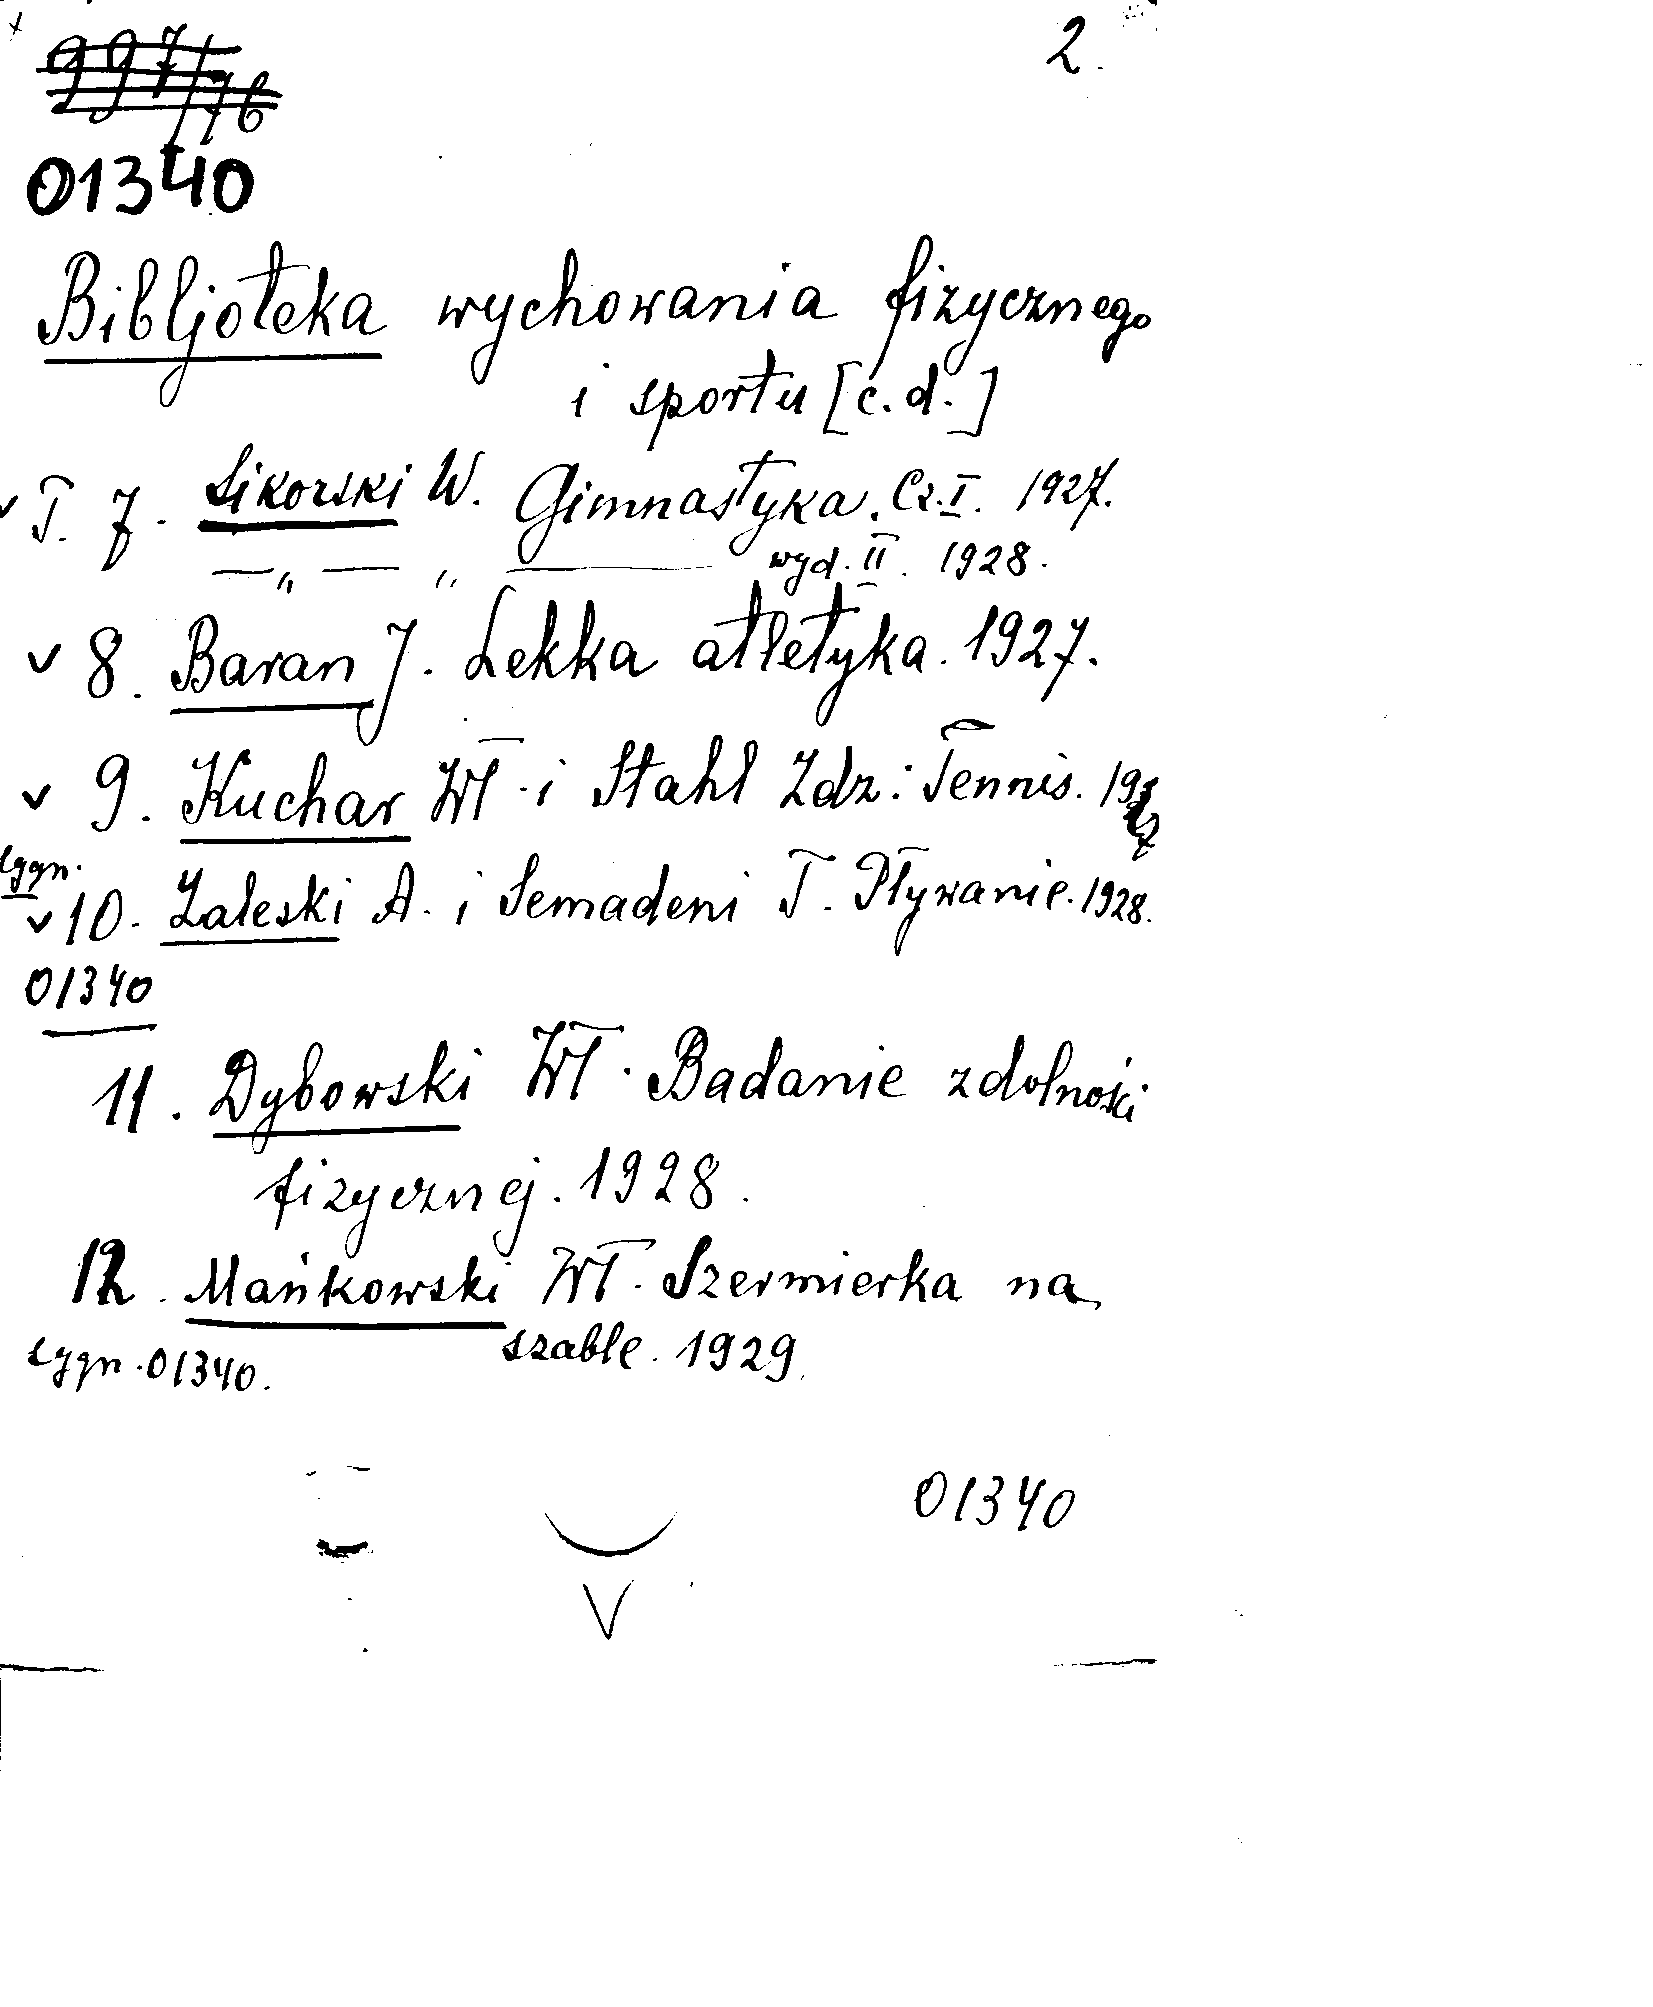 2.
997/76
01340
Bibljoteka wychowania fizycznego
i sportu [c.d.]
v T. 7. Sikorski W. Gimnastyka. Cz. I. 1927.
—„— „ — wyd. II. 1928.
v 8. Baran J. Lekka atletyka. 1927.
v 9. Kuchar Wł. i Stahl Zdz: Tennis.
sygn.
v 10. Zaleski A. i Semadeni T. Pływanie. 1928.
01340
11. Dybowski Wł. Badanie zdolności
fizycznej. 1928.
12. Mańkowski Wł. Szermierka na
szable. 1929.
sygn. 01340.
01340